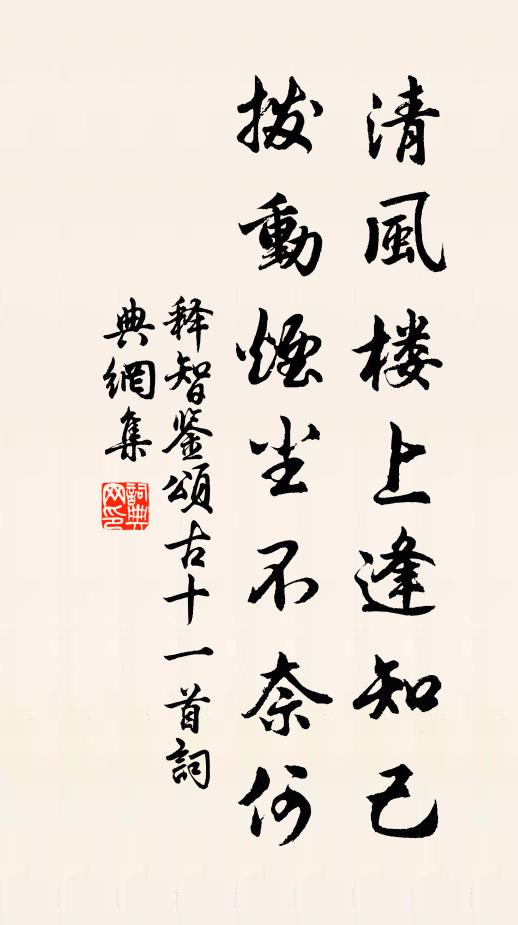 清風楼上逢知己
拨動煙尘不奈何
释智鉴頌古十一首詞
典網集
詞典
网印